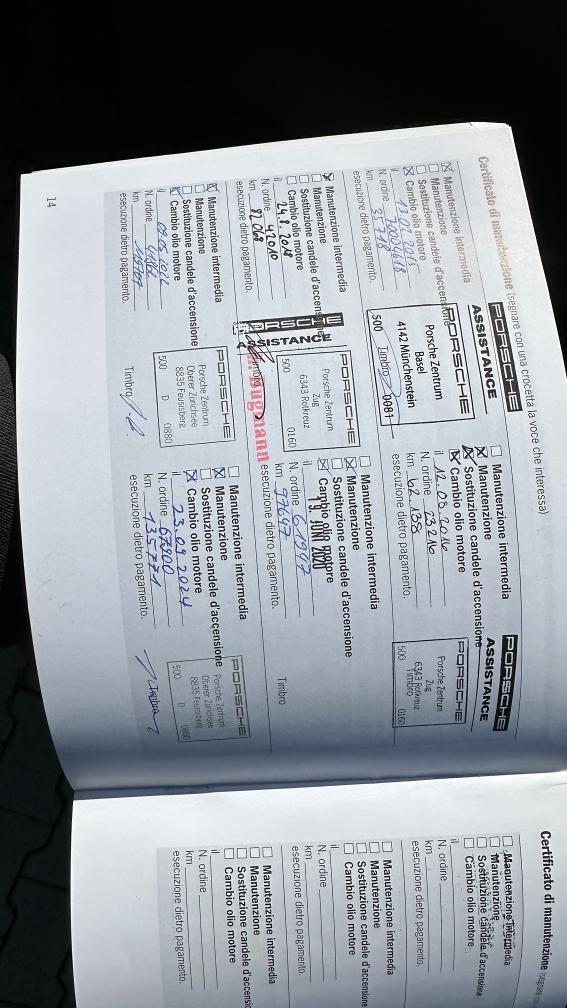 Certificato di manutenzione (segnare con una crocetta la voce che interessa)
Manutenzione intermedia
Manutenzione
Sostituzione candele d'accensione
Cambio olio motore
il
N. ordine
km 35718
esecuzione dietro pagamento.
PORSCHE
ASSISTANCE
PORSCHE
Porsche Zentrum
Basel
4142 Münchenstein
Timbro
500 0081
Manutenzione intermedia
Manutenzione
Sostituzione candele d'accensione
Cambio olio motore
il 12.08.2016
N. ordine 23216
km 62'138
esecuzione dietro pagamento.
PORSCHE
ASSISTANCE
PORSCHE
Porsche Zentrum
Zug
6343 Rotkreuz
Timbro
500 0160
Manutenzione intermedia
Manutenzione
Sostituzione candele d'accensione
Cambio olio motore
il 24.8.2018
N. ordine 42010
km 82068
esecuzione dietro pagamento.
PORSCHE
ASSISTANCE
PORSCHE
Porsche Zentrum
Zug
6343 Rotkreuz
500 0160
Manutenzione intermedia
Manutenzione
Sostituzione candele d'accensione
Cambio olio motore
il 19. JUNI 2020
N. ordine 61967
km 97647
esecuzione dietro pagamento.
Timbro
Manutenzione intermedia
Manutenzione
Sostituzione candele d'accensione
Cambio olio motore
il 09.05.2022
N. ordine
km
esecuzione dietro pagamento.
PORSCHE
Porsche Zentrum
Oberer Zürichsee
8835 Feusisberg
500 D 0880
Timbro
Manutenzione intermedia
Manutenzione
Sostituzione candele d'accensione
Cambio olio motore
il 23.09.2024
N. ordine
km 135771
esecuzione dietro pagamento.
PORSCHE
Porsche Zentrum
Oberer Zürichsee
8835 Feusisberg
500 D 0880
Timbro
14
Certificato di manutenzione
Manutenzione intermedia
Manutenzione
Sostituzione candele d'accensione
Cambio olio motore
il
N. ordine
km
esecuzione dietro pagamento.
Manutenzione intermedia
Manutenzione
Sostituzione candele d'accensione
Cambio olio motore
il
N. ordine
km
esecuzione dietro pagamento.
Manutenzione intermedia
Manutenzione
Sostituzione candele d'accensi
Cambio olio motore
il
N. ordine
km
esecuzione dietro pagamento.